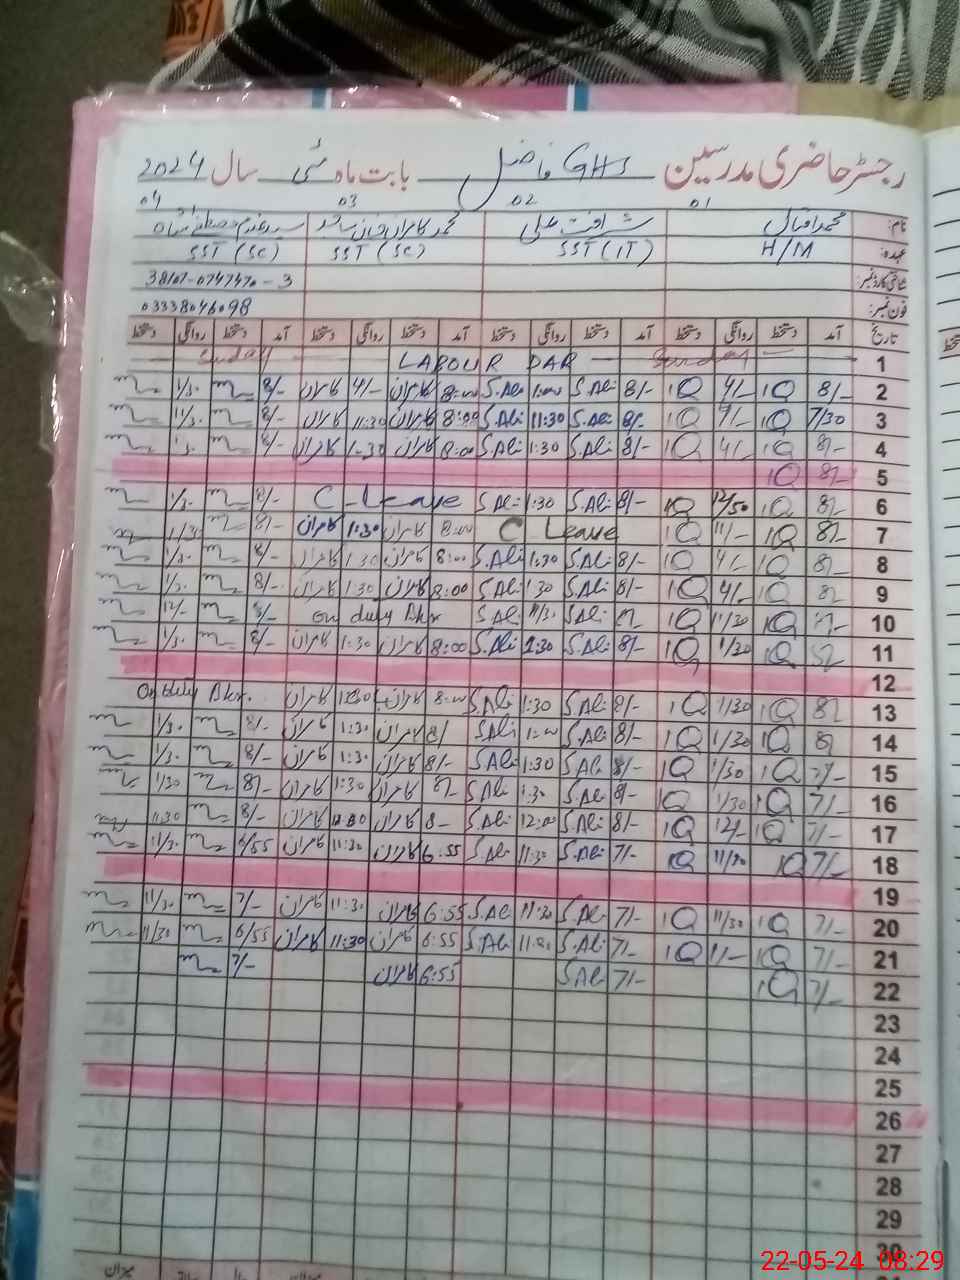 رجسٹر حاضری مدرسین GHS فاضل بابت ماہ مئی سال 2024
01 02 03 04
نام: محمد اقبال شرافت علی محمد کامران
عہدہ: H/M SST (IT) SST (SC) SST (SC)
شناختی کارڈ نمبر: 38107-0747470-3
فون نمبر: 03338046098
تاریخ آمد دستخط روانگی دستخط آمد دستخط روانگی دستخط آمد دستخط روانگی دستخط آمد دستخط روانگی دستخط
1 Sunday LABOUR DAR Sunday
2 8/- IQ 4/- IQ 8/- S.Ali 1:00 S.Ali 8:00 کامران 4/- کامران 8/- 1/30
3 7/30 IQ 4/- IQ 8/- S.Ali 11:30 S.Ali 8:00 کامران 11:30 کامران 8/- 11/30
4 8/- IQ 4/- IQ 8/- S.Ali 1:30 S.Ali 8:00 کامران 1:30 کامران 8/- 1/30
5 8/- IQ
6 8/- IQ 12/50 IQ 8/- S.Ali 1:30 S.Ali C-Leave 8/- 1/30
7 8/- IQ 11/- IQ C Leave 8:00 کامران 1:30 کامران 8/- 1/30
8 8/- IQ 4/- IQ 8/- S.Ali 1:30 S.Ali 8:00 کامران 1:30 کامران 8/- 1/30
9 8/- IQ 4/- IQ 8/- S.Ali 1:30 S.Ali 8:00 کامران 1:30 کامران 8/- 1/30
10 IQ 11/30 IQ S.Ali 11/30 S.Ali on duty Bkr 8/- 12/-
11 IQ 1/30 IQ 8/- S.Ali 1:30 S.Ali 8:00 کامران 1:30 کامران 8/- 1/30
12
13 8/- IQ 1/30 IQ 8/- S.Ali 1:30 S.Ali 8:00 کامران 1:30 کامران On duty Bkr.
14 8/- IQ 1/30 IQ 8/- S.Ali 1:00 S.Ali 8/ کامران 1:30 کامران 8/- 1/30
15 7/- IQ 1/30 IQ 8/- S.Ali 1:30 S.Ali 8/- کامران 1:30 کامران 8/- 1/30
16 7/- IQ 1/30 IQ 8/- S.Ali 1:30 S.Ali 8/- کامران 1:30 کامران 8/- 1/30
17 7/- IQ 12/- IQ 8/- S.Ali 12:00 S.Ali 8- کامران کامران 8/- 11:30
18 7/- IQ 11/30 IQ 7/- S.Ali 11:30 S.Ali 6:55 کامران 11:30 کامران 6/55 11/30
19
20 7/- IQ 11/30 IQ 7/- S.Ali 11:30 S.Ali 6:55 کامران 11:30 کامران 7/- 11/30
21 7/- IQ 11/- IQ 7/- S.Ali 11:30 S.Ali 6:55 کامران 11:30 کامران 6/55 11/30
22 7/- IQ 7/- S.Ali 6:55 کامران 7/-
23
24
25
26
27
28
29
30
میزان
22-05-24 08:29